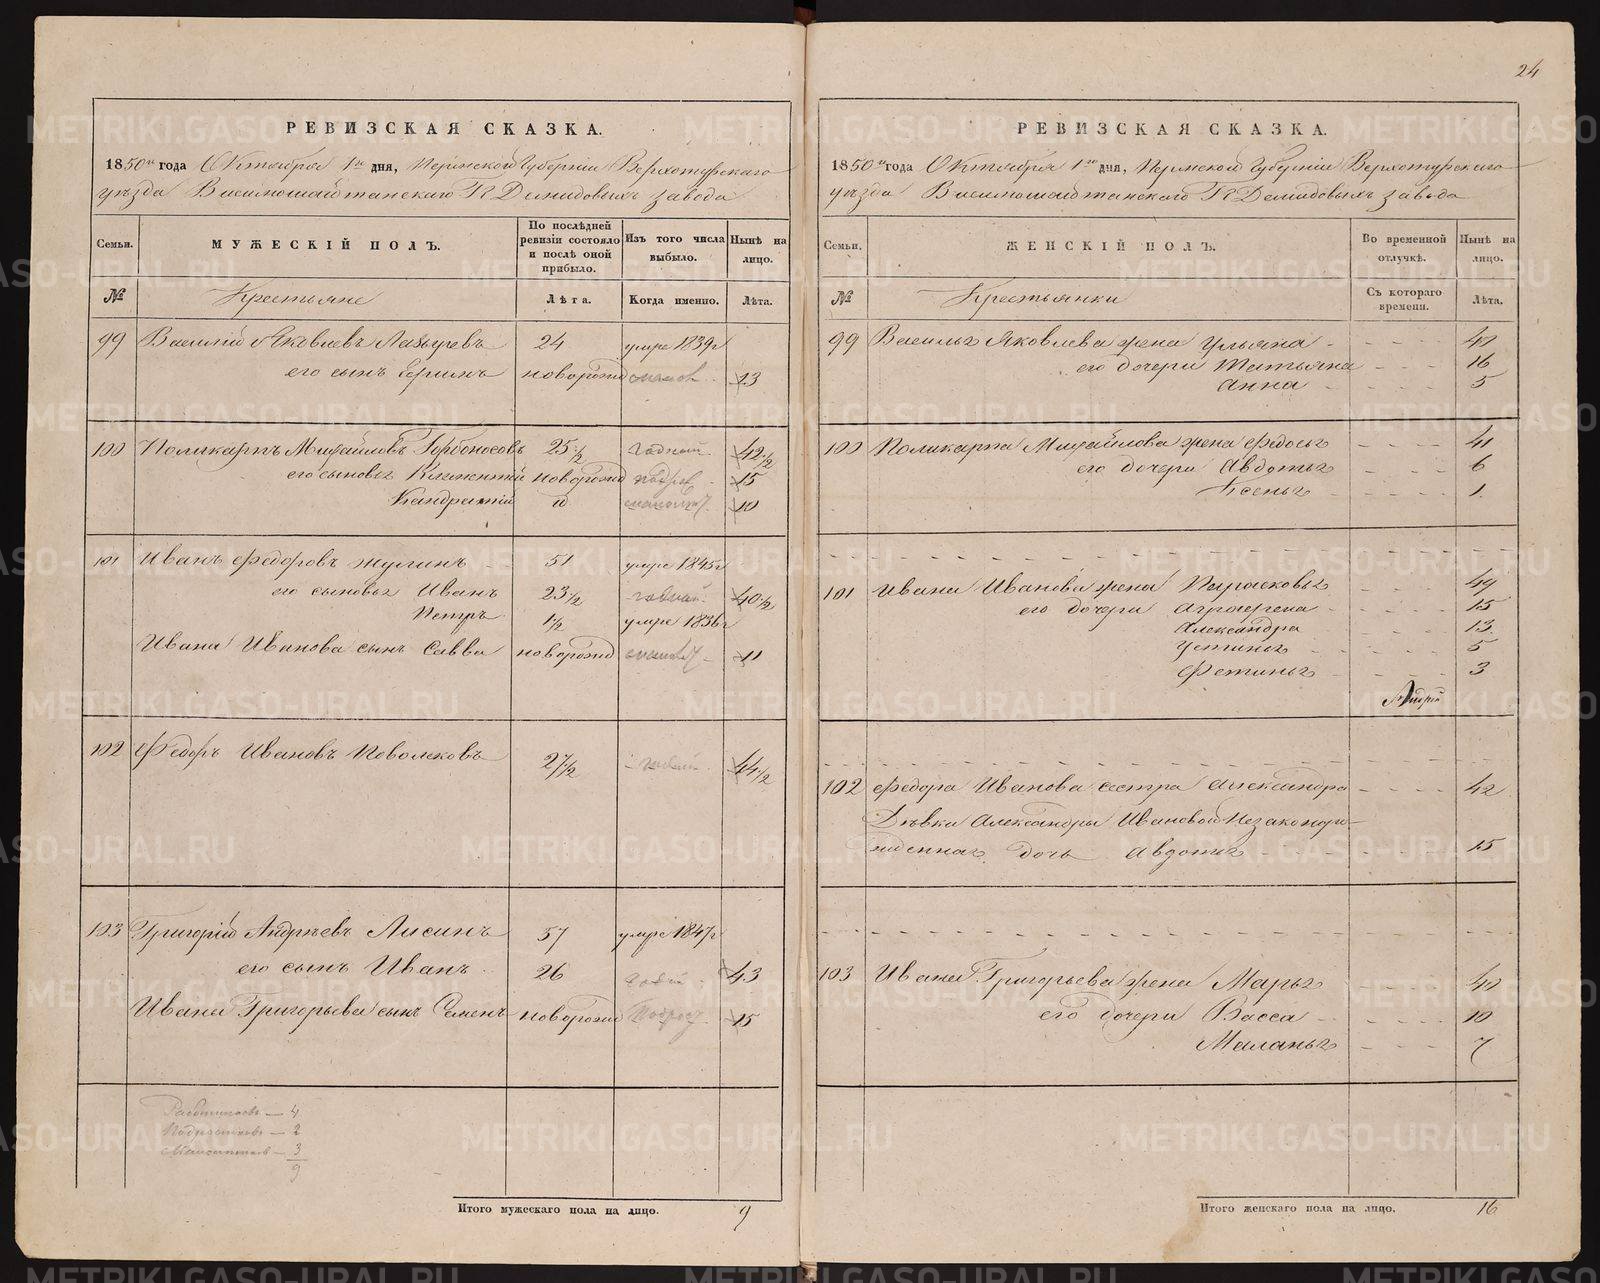 24
РЕВИЗСКАЯ СКАЗКА.
1850го года Октября 1го дня, Пермской Губернiи Верхотурскаго
уѣзда Висимошайтанскаго Гг Демидовыхъ завода
Семьи. МУЖЕСКIЙ ПОЛЪ. По послѣдней ревизiи состояло и послѣ оной прибыло. Изъ того числа выбыло. Нынѣ на лицо.
№ Крестьяне Лѣта. Когда именно. Лѣта.
99 Василiй Яковлевъ 24 умре 1839г
его сынъ новорожд 13
100 Поликарпъ Михайловъ Горбоносовъ 25½ годный 42½
его сыновья Климентiй новорожд подрос 15
Кандратiй 10
101 Иванъ Федоровъ Жулинъ 51 умре 1845г
его сыновья Иванъ 23½ годный 40½
Петръ 1½ умре 1836г
Ивана Иванова сынъ Савва новорожд 11
102 Федоръ Ивановъ Поволековъ 27½ 44½
103 Григорiй Андрѣевъ Лисинъ 57 умре 1847г
его сынъ Иванъ 26 43
Ивана Григорьева сынъ Семенъ новорожд подрос 15
Работниковъ — 4
Подростковъ — 2
Малолѣтковъ — 3
9
Итого мужескаго пола на лицо. 9
РЕВИЗСКАЯ СКАЗКА.
1850го года Октября 1го дня, Пермской Губернiи Верхотурскаго
уѣзда Висимошайтанскаго Гг Демидовыхъ завода
Семьи. ЖЕНСКIЙ ПОЛЪ. Во временной отлучкѣ. Нынѣ на лицо.
№ Крестьянки Съ котораго времени. Лѣта.
99 Василья Яковлева жена Ульяна 40
его дочери Татьяна 16
Анна 5
100 Поликарпа Михайлова жена Федосья 41
его дочери Авдотья 6
Ксенья 1
101 Ивана Иванова жена Парасковья 49
его дочери Аграфена 15
Александра 13
Устинья 5
Фетинья 3
102 Федора Иванова сестра Александра 42
Дѣвки Александры Ивановой Незаконоро-
жденная дочь Авдотья 15
103 Ивана Григорьева жена Марья 40
его дочери Васса 10
Маланья 7
Итого женскаго пола на лицо. 16
METRIKI.GASO-URAL.RU